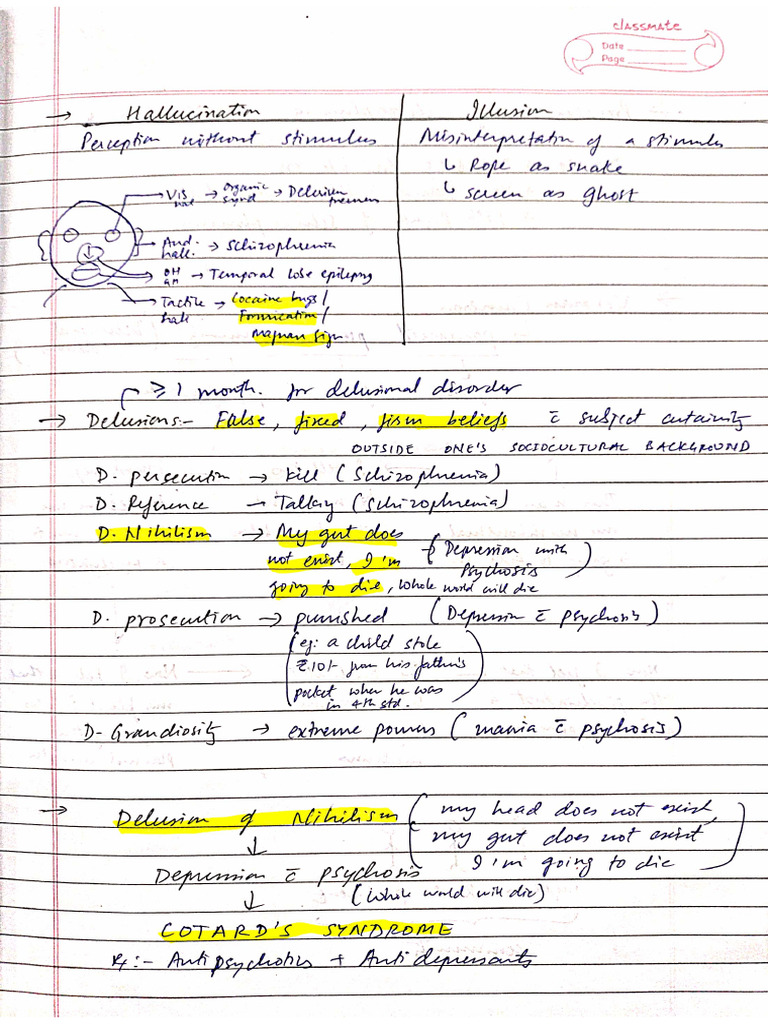 classmate
Date
Page
→ Hallucination
Perception without stimulus
Illusion
Misinterpretation of a stimulus
↳ Rope as snake
↳ screen as ghost
→ Visual → Organic synd → Delirium tremens
→ Aud. hall. → Schizophrenia
OH GH → Temporal lobe epilepsy
→ Tactile hall → Cocaine bugs /
Formication /
Magnan sign
≥ 1 month. for delusional disorder
→ Delusions:- False, fixed, firm beliefs c̄ subject certainity
OUTSIDE ONE'S SOCIOCULTURAL BACKGROUND
D. persecution → kill (Schizophrenia)
D. Reference → Talking (Schizophrenia)
D. Nihilism → My gut does
not exist, I'm
going to die, whole world will die
(Depression with
psychosis)
D. prosecution → punished (Depression c̄ psychosis)
(eg: a child stole
₹10/- from his father's
pocket when he was
in 4th std.)
D- Grandiosity → extreme powers (mania c̄ psychosis)
→ Delusion of Nihilism (my head does not exist,
my gut does not exist
I'm going to die)
↓
Depression c̄ psychosis
↓ (whole world will die)
COTARD'S SYNDROME
Rx:- Antipsychotics + Antidepressants